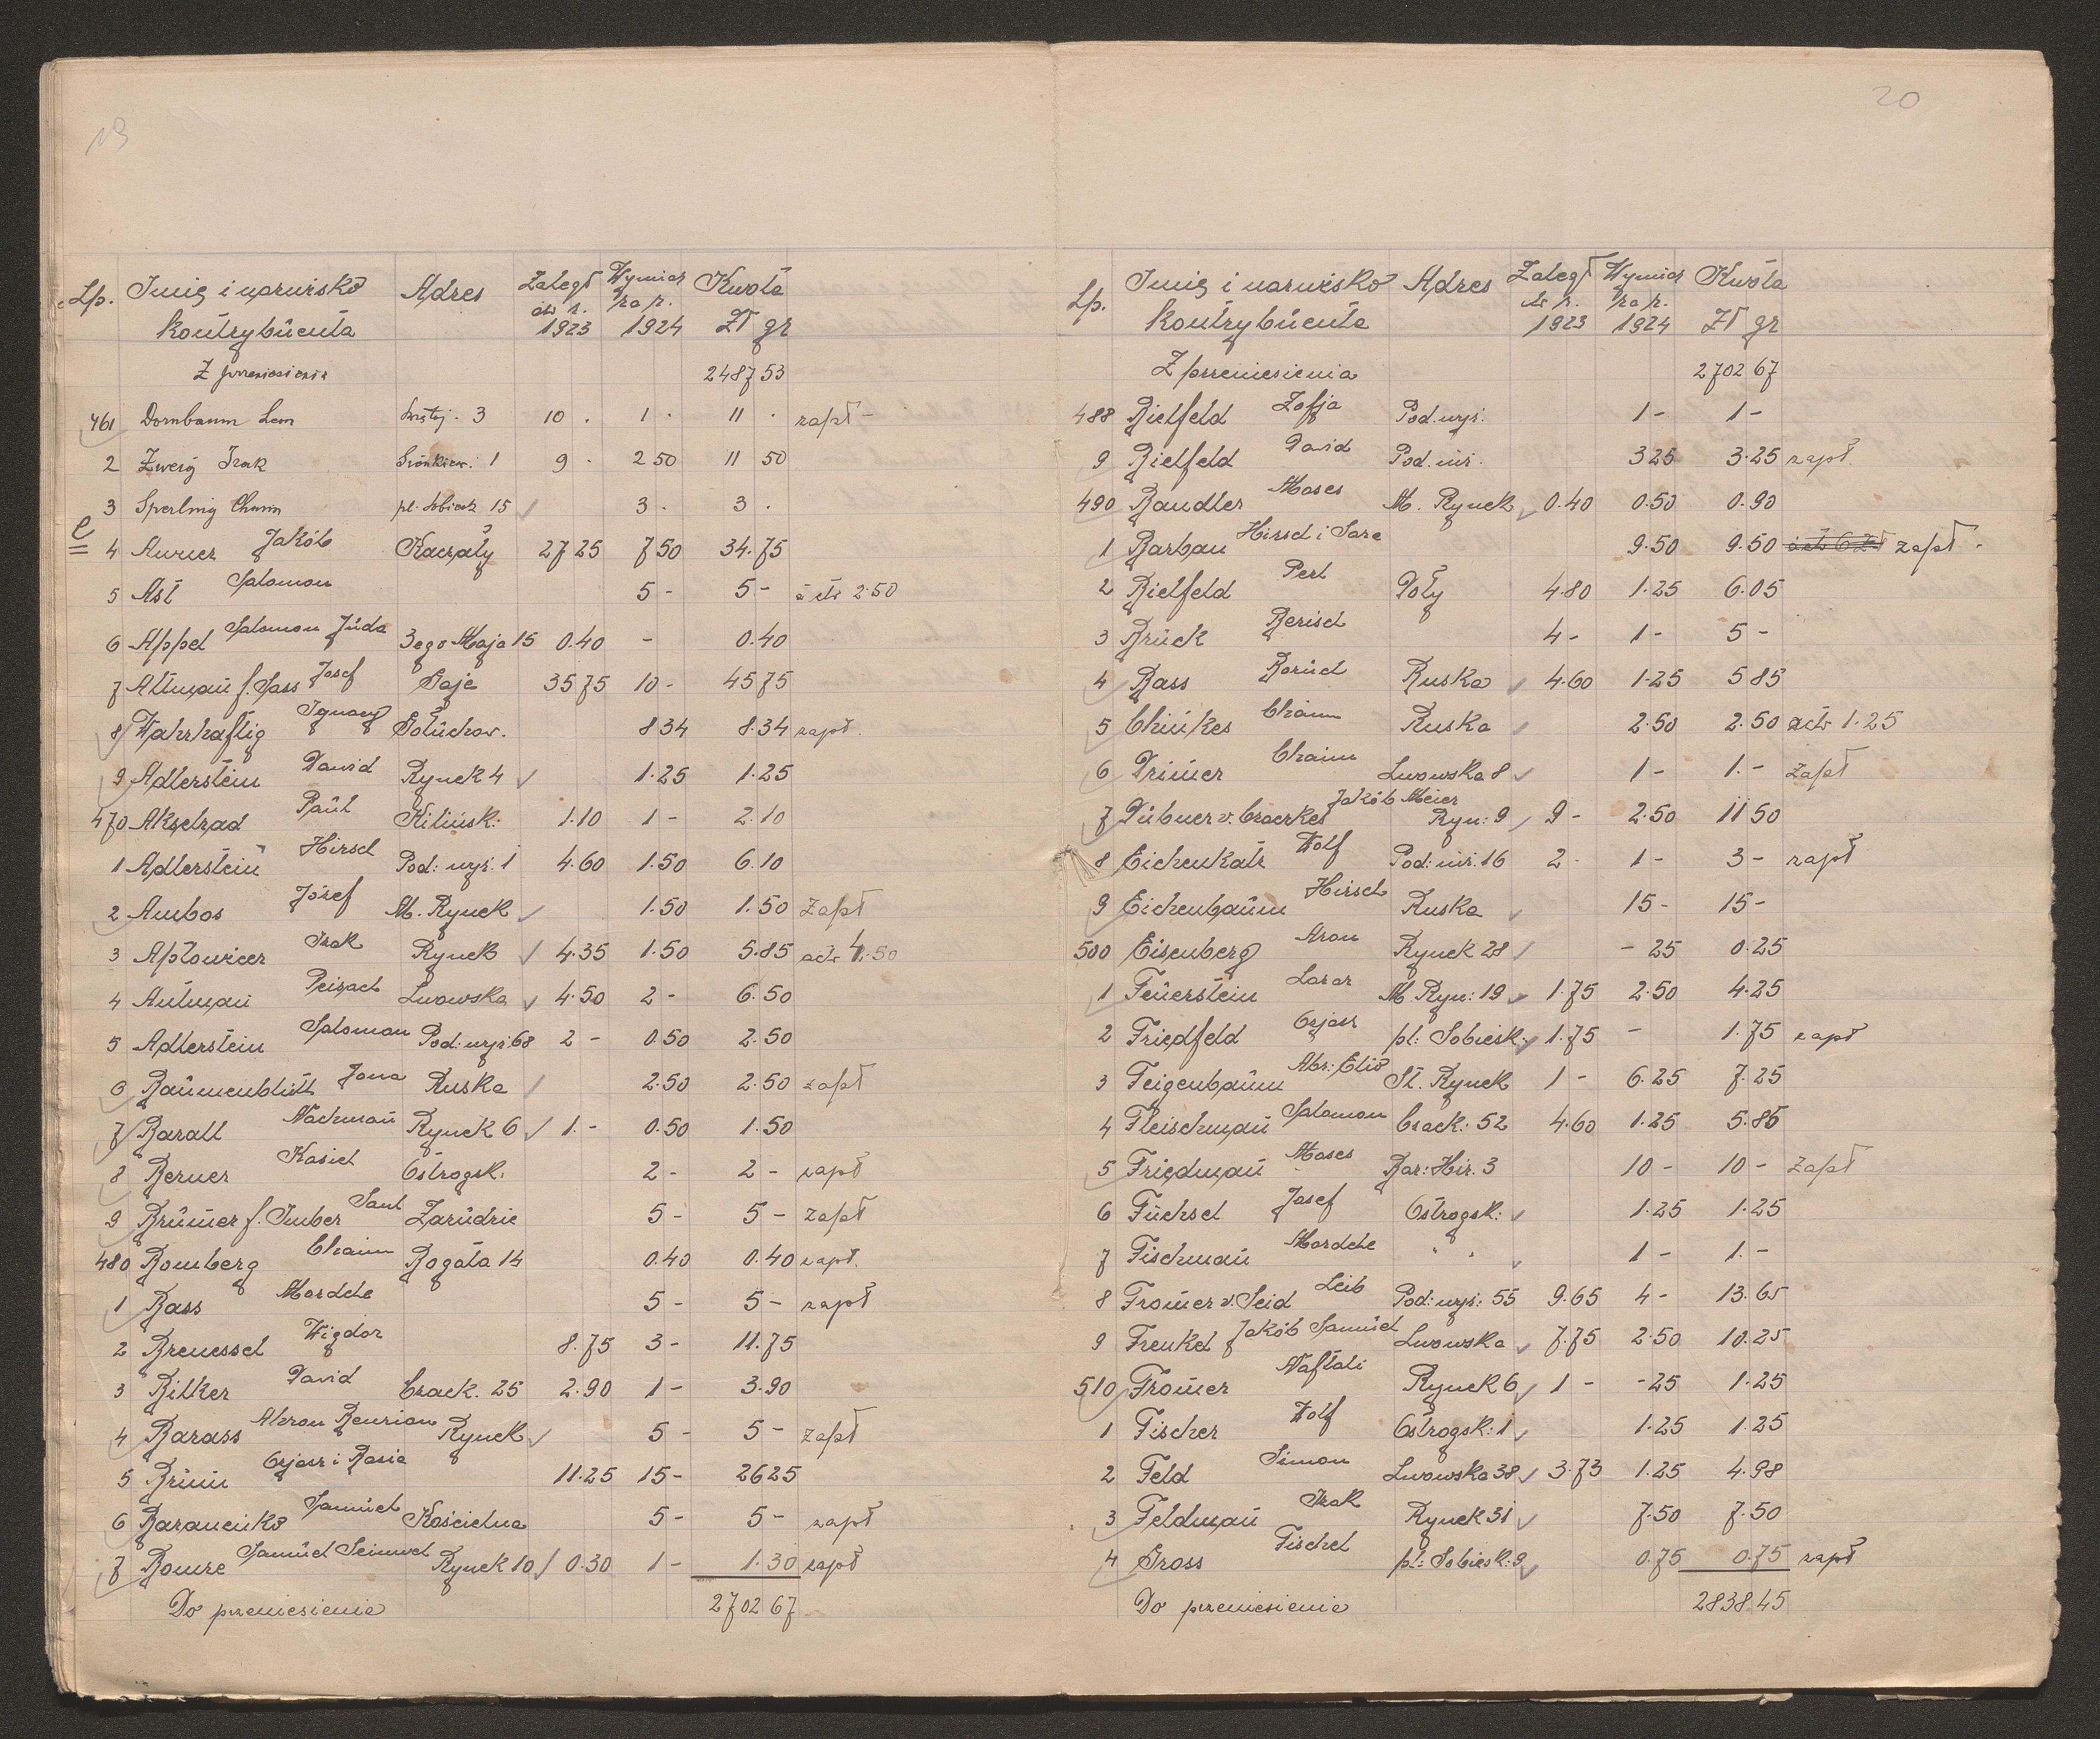 19
Lp. Imię i nazwisko kontrybuenta Adres Zaległ za r. 1923 Wymiar za r. 1924 Kwota Zł gr
Z przeniesienia 2487 53
461 Dornbaum Leon 3 10 . 1 . 11 . zapł -
2 Zweig Izak 1 9 - 2 50 11 50
3 Sperling Chaim pl. Sobiesk 15 ✓ 3 . 3 .
4 Auner Jakób Kaczały 27 25 7 50 34.75
5 Ast Salomon 5 - 5 - a cto 2.50
6 Appel Salomon Juda 3ego Maja 15 0.40 - 0.40
7 Altman f. Sass Josef Gaje 35 75 10 - 45 75
8 Wahrhaftig Ignacy Gołuchow. 8 34 8.34 zapł.
9 Adlerstein Dawid Rynek 4 ✓ 1.25 1.25
470 Akselrad Paul Kilińsk: 1.10 1 - 2.10
1 Adlerstein Hirsch Pod: wyż. 1 4.60 1.50 6.10
2 Ambos Józef M. Rynek ✓ 1.50 1.50 Zapł
3 Aptowicer Izak Rynek ✓ 4.35 1.50 5.85 acto .50
4 Autman Peisach Lwowska ✓ 4.50 2 - 6.50
5 Adlerstein Salomon Pod: wyż: 68 2 - 0.50 2.50
6 Baumenblütt Jona Ruska ✓ 2.50 2.50 zapł
7 Barall Nachman Rynek 6 ✓ 1. - 0.50 1.50
8 Berner Kasiel Ostrogsk. 2 - 2 - zapł
9 Brümer f. Imber Saul Zarudzie 5 - 5 - zapł
480 Bomberg Chaim Rogata 14 0.40 0.40 zapł.
1 Bass Mordche 5 - 5 - zapł
2 Brenessel Wigdor 8.75 3 - 11.75
3 Bilker David Czack. 25 2.90 1 - 3.90
4 Barass Ahron Benzion Rynek ✓ 5 - 5 - zapł
5 Brünn Ozjasz i Basia 11.25 15 - 26 25
6 Baraniuko Samuel Kościelna 5 - 5 - zapł
7 Bomze Samuel Seinwel Rynek 10 ✓ 0.30 1 - 1.30 zapł
Do przeniesienia 2702 67
20
Lp. Imię i nazwisko kontrybuenta Adres Zaległ za r. 1923 Wymiar za r. 1924 Kwota Zł gr
Z przeniesienia 2702 67
488 Bielfeld Zofja Pod. wyż: 1 - 1 -
9 Bielfeld David Pod. niż. 3 25 3.25 zapł.
490 Baudler Moses M. Rynek ✓ 0.40 0.50 0.90
1 Barbau Hirsch i Sara 9.50 9.50 zapł -
2 Bielfeld Perl Doły 4.80 1.25 6.05
3 Brück Berisch 4 - 1 - 5 -
4 Bass Boruch Ruska ✓ 4.60 1.25 5 85
5 Chinkes Chaim Ruska ✓ 2.50 2.50 acto 1.25
6 Drimer Chaim Lwowska 8 ✓ 1 - 1. - zapł
7 Dubner v. Czaczkes Jakób Meier Ryn: 9 ✓ 9 - 2.50 11 50
8 Eichenkatz Wolf Pod: niż. 16 2 - 1 - 3 - zapł
9 Eichenbaum Hirsch Ruska ✓ 15 - 15 -
500 Eisenberg Aron Rynek 28 ✓ - 25 0.25
1 Feuerstein Lazar M. Ryn: 19 ✓ 1.75 2.50 4.25
2 Friedfeld Ozjasz pl: Sobiesk: ✓ 1.75 - 1.75 zapł
3 Feigenbaum Abr: Elio St. Rynek 1 - 6.25 7.25
4 Fleischman Salomon Czack: 52 4.60 1.25 5.85
5 Friedman Moses Bar: Hir. 3 10 - 10 - Zapł
6 Fuchsel Josef Ostrogsk: ✓ 1.25 1.25
7 Fischman Mordche " " ✓ 1 - 1. -
8 Fromer v. Seid Leib Pod: wyż: 55 9.65 4 - 13.65
9 Frenkel Jakób Samuel Lwowska ✓ 7.75 2.50 10.25
510 Fromer Naftali Rynek 6 ✓ 1 - - 25 1.25
1 Fischer Wolf Ostrogsk: 1 ✓ 1.25 1.25
2 Feld Simon Lwowska 38 ✓ 3.73 1.25 4.98
3 Feldman Izak Rynek 31 ✓ 7.50 7.50
4 Gross Fischel pl: Sobiesk: 9 ✓ 0.75 0.75 zapł
Do przeniesienia 2838.45